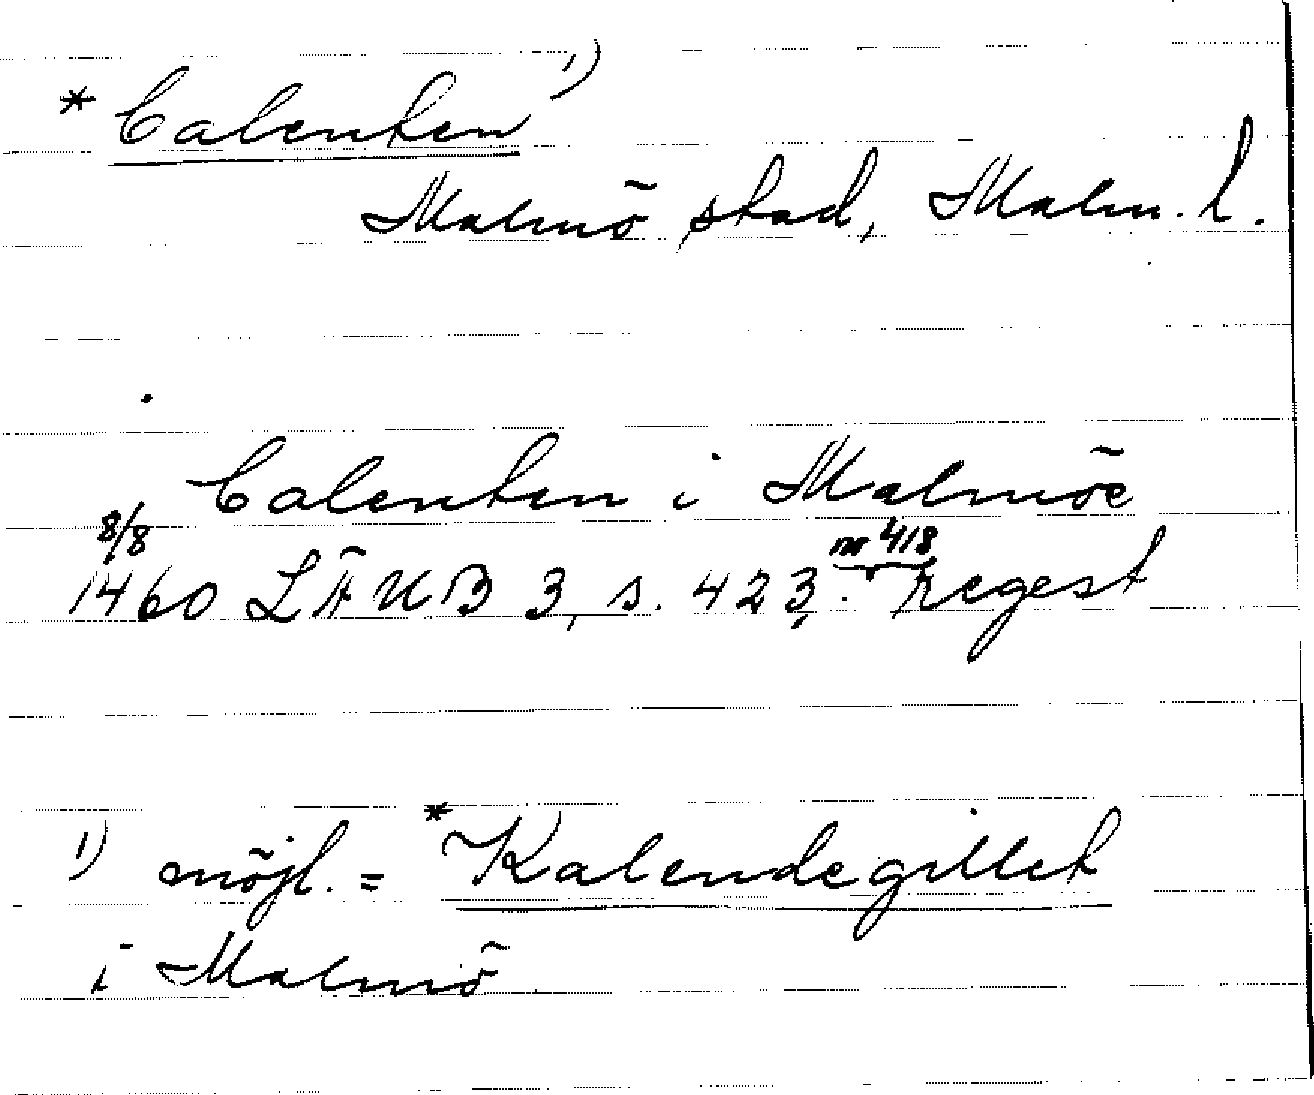 * Calenten 1)
Malmö stad, Malm. l.
Calenten i Malmöe
8/8
1460 LÄUB 3, s. 423. nr 418 regest
1) möjl. = *Kalendegillet
i Malmö